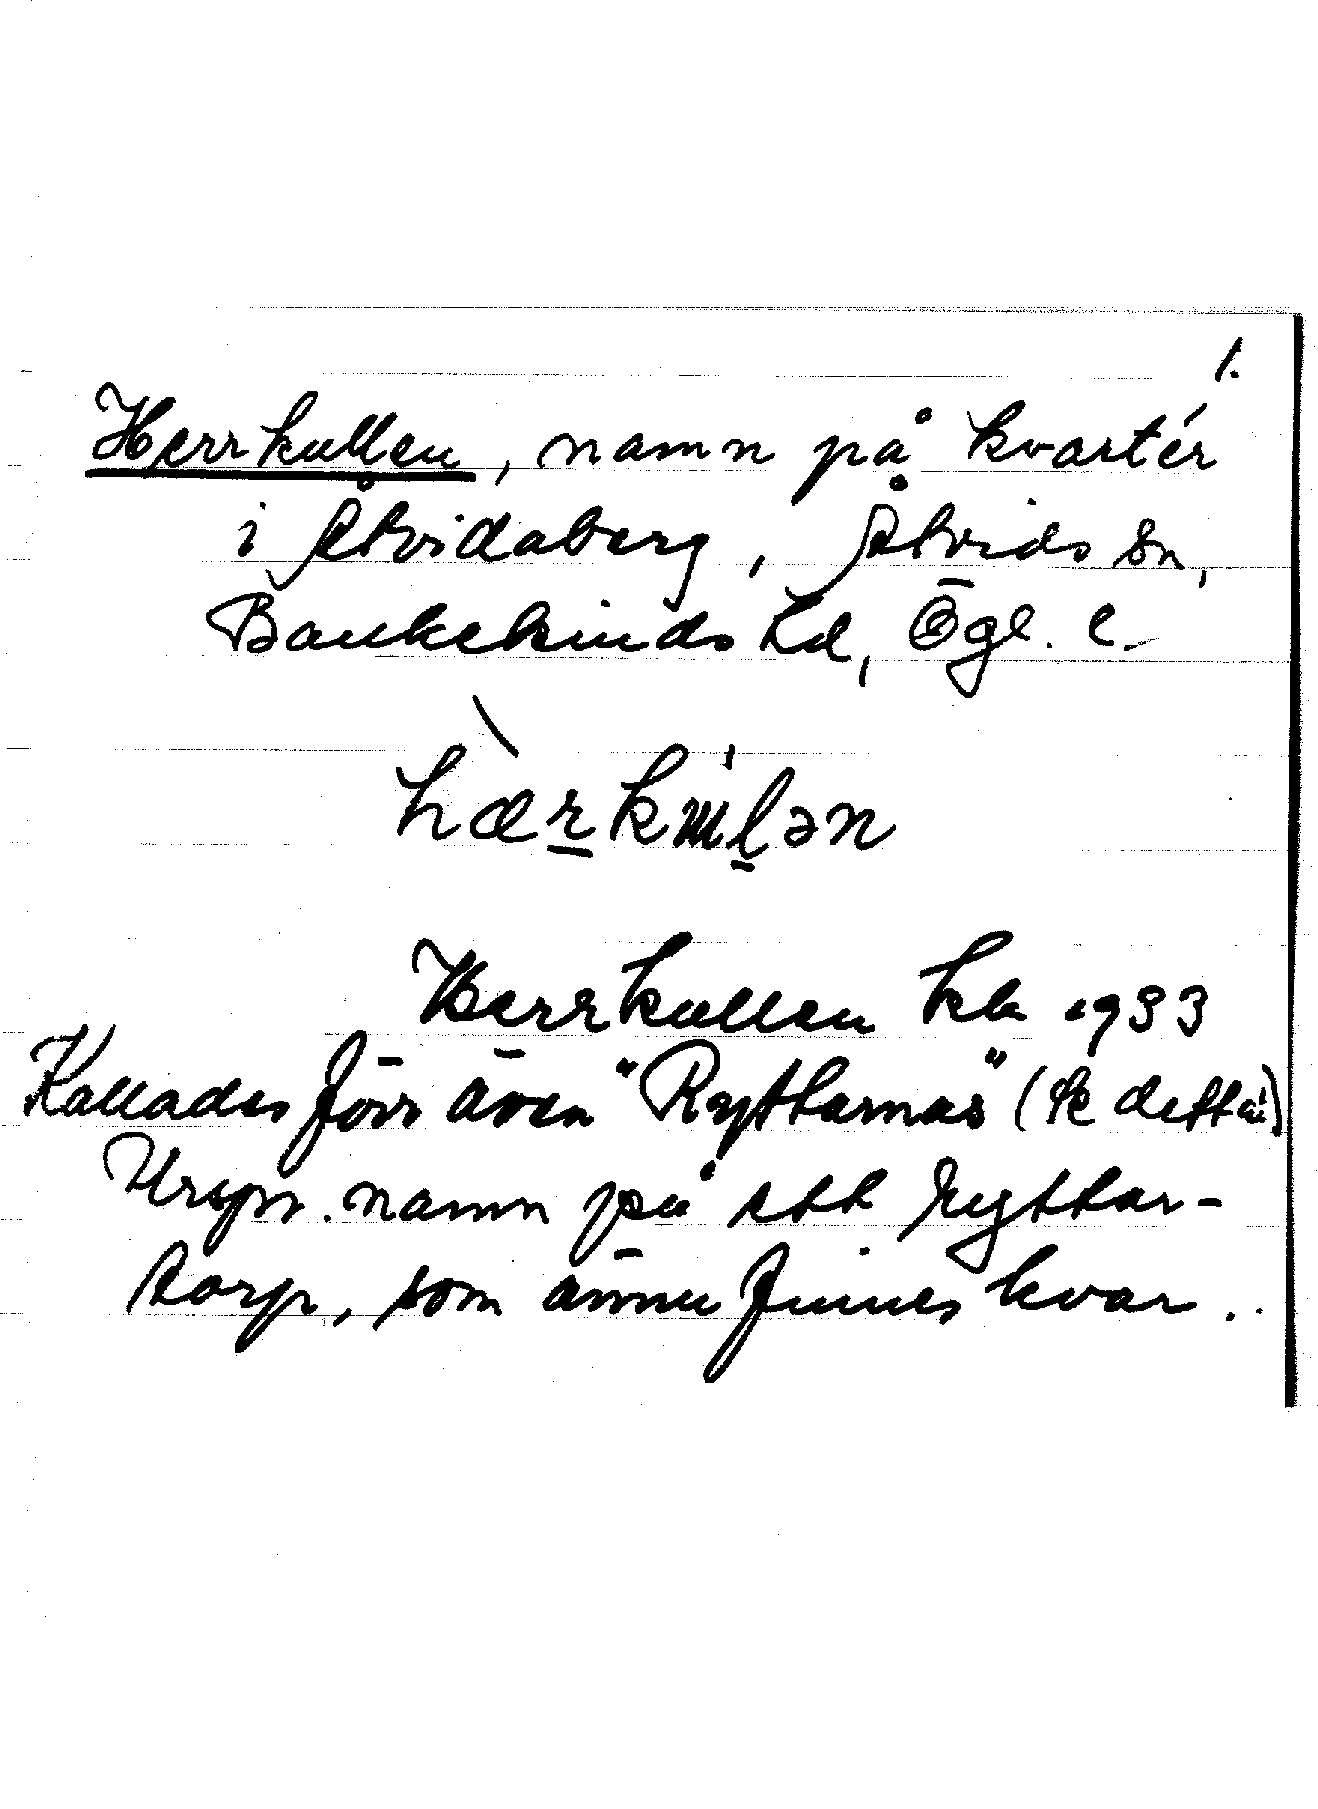 1.
Herrkullen, namn på kvartér
i Åtvidaberg, Åtvids sn,
Bankekinds hd, Ögl. l.
hæ̀rkɯl̥ən
Herrkullen kk 1933
Kallades förr även "Ryttarnas" (se detta)
Urspr. namn på ett Ryttar-
torp, som ännu finnes kvar..